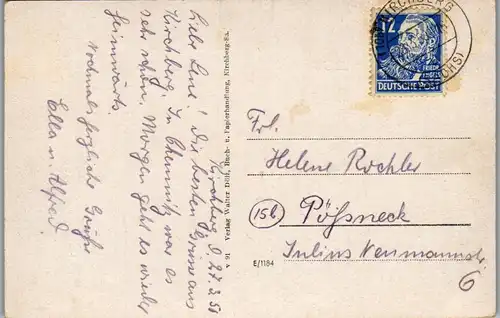 Kirchberg, d. 27.2.51
Liebe Lene! Die besten Grüsse aus
Kirchberg. In Chemnitz war es
sehr schön. Morgen geht es wieder
heimwärts.
Nochmals herzliche Grüße
Ella u. Alfred.
Verlag Walter Döls, Buch- u. Papierhandlung, Kirchberg-Sa.
KIRCHBERG
(SACHS)
12
FRIEDR.
ENGELS
DEUTSCHE POST
Frl.
Helene Rochler
(15b) Pößneck
Julius Neumannstr.
6
E/1184